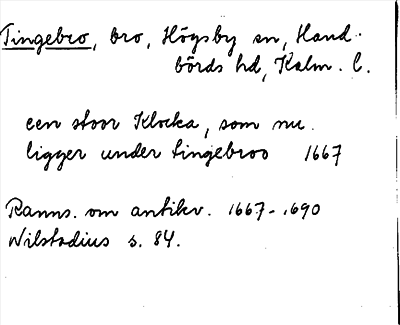 Tingebro, bro, Högsby sn, Hand-
börds hd, Kalm. l.
een stoor Klocka, som nu
ligger under tingebroo 1667
Ranns. om antikv. 1667-1690
Nilstadius s. 84.